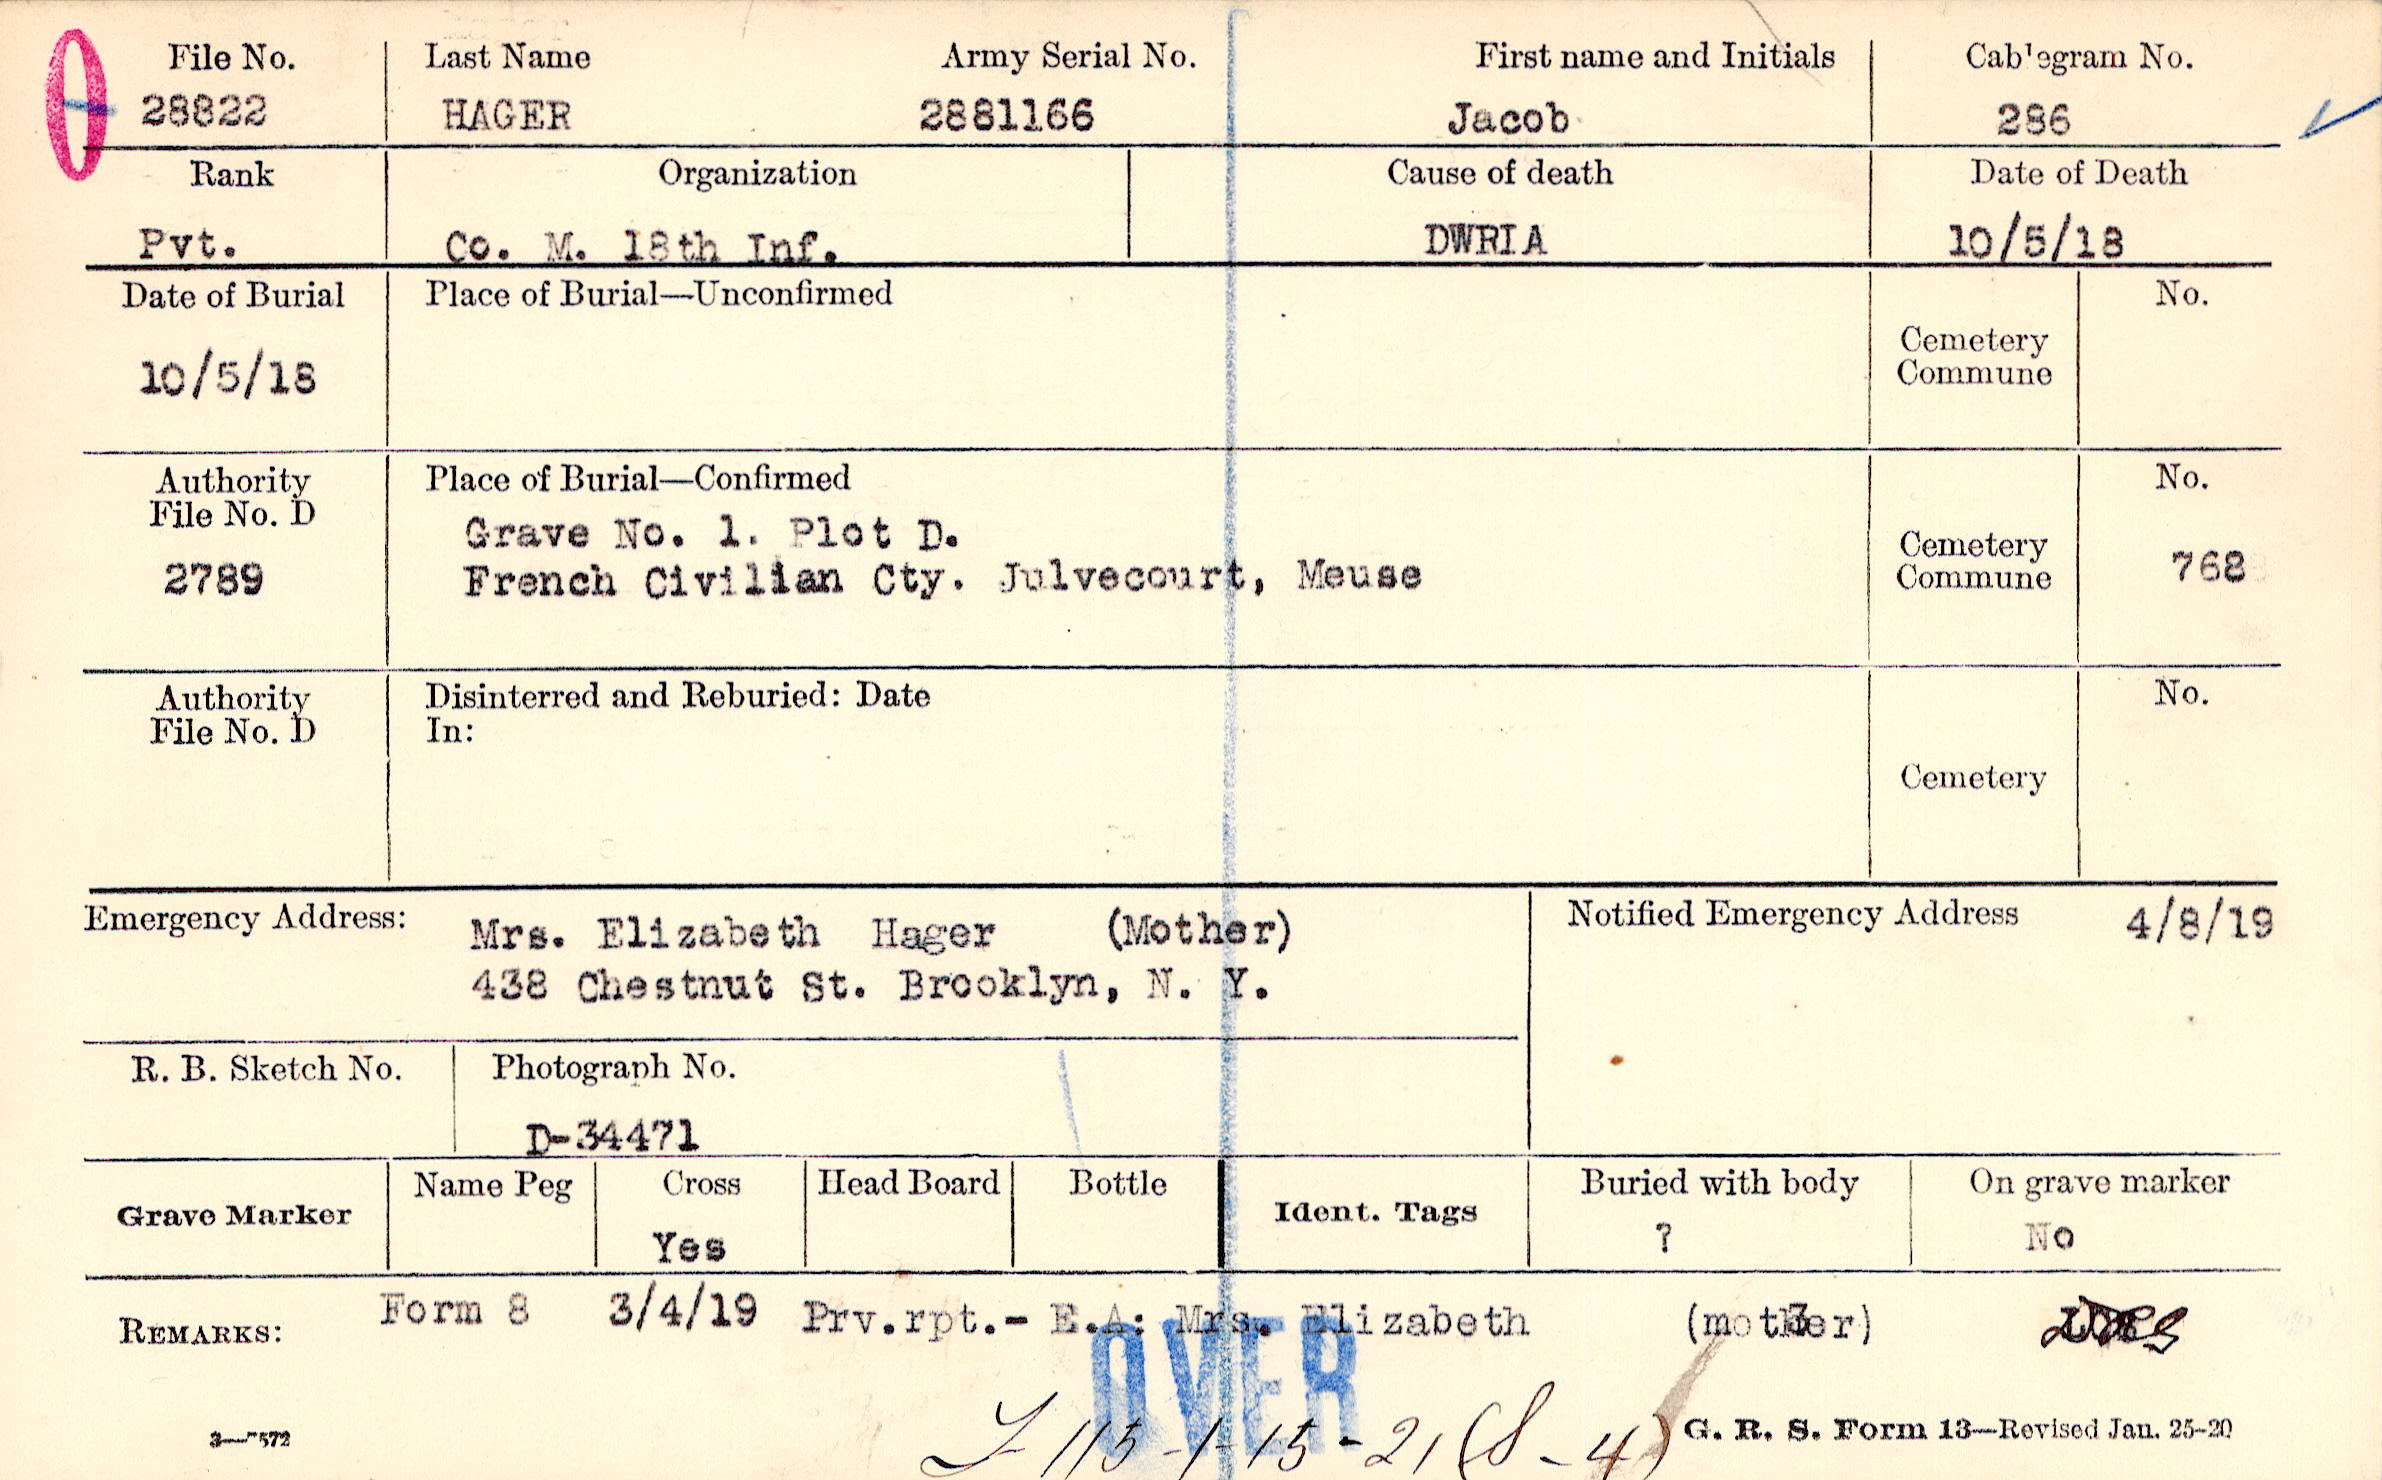 File No. Last Name Army Serial No. First name and Initials Cab'egram No.
28822 HAGER 2881166 Jacob 286
Rank Organization Cause of death Date of Death
Pvt. Co. M. 18th Inf. DWRIA 10/5/18
Date of Burial Place of Burial—Unconfirmed No.
10/5/18 Cemetery
Commune
Authority Place of Burial—Confirmed No.
File No. D
2789 Grave No. 1. Plot D.
French Civilian Cty. Julvecourt, Meuse
Cemetery
Commune 768
Authority Disinterred and Reburied: Date No.
File No. D In:
Cemetery
Emergency Address: Mrs. Elizabeth Hager (Mother)
438 Chestnut St. Brooklyn, N. Y.
Notified Emergency Address 4/8/19
R. B. Sketch No. Photograph No.
D-34471
Grave Marker Name Peg Cross Head Board Bottle Ident. Tags Buried with body On grave marker
Yes ? No
REMARKS: Form 8 3/4/19 Prv.rpt.- E.A: Mrs. Elizabeth (mother)
OVER
115-1-15-21 (S-4)
G. R. S. Form 13—Revised Jan. 25-20